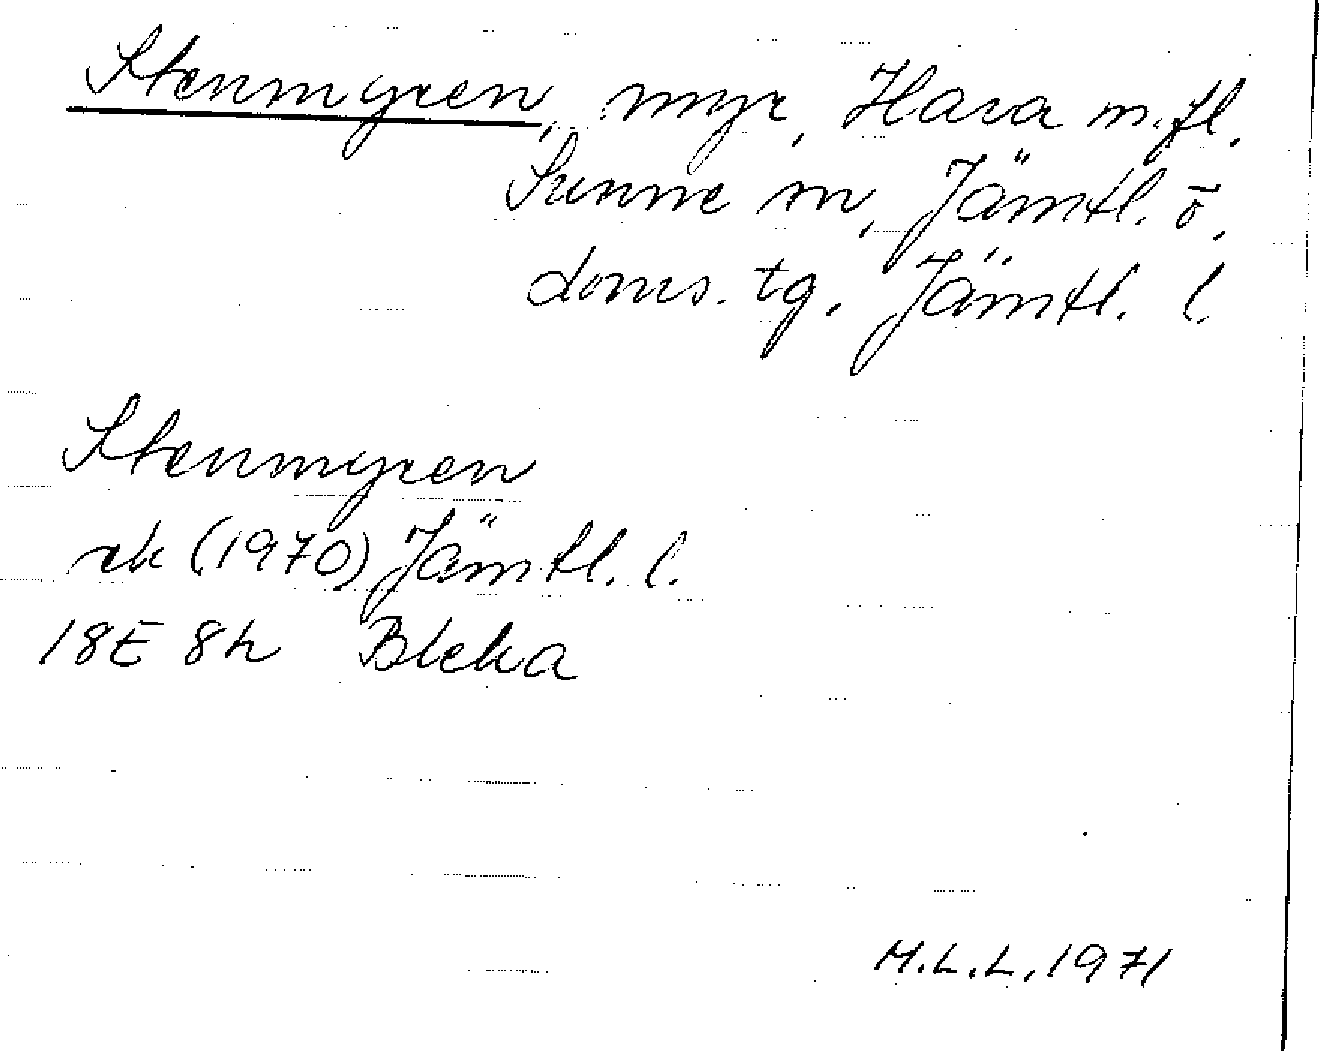 Stenmyren, myr, Hara m.fl.
Sunne sn, Jämtl. ö.
doms. tg. Jämtl. l.
Stenmyren
rak (1970) Jämtl. l.
18E 8h Bleka
M.L.L. 1971